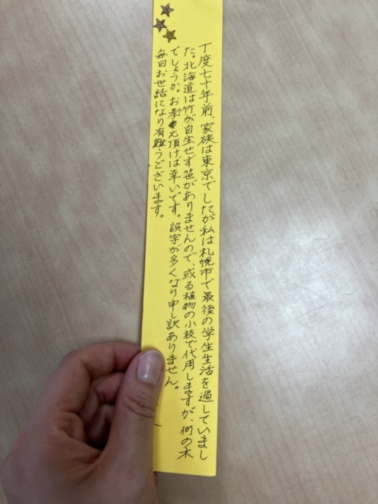 丁度七十年前、家族は東京でしたが私は札幌市で最後の学生生活を過していまし
た。北海道は竹が自生せず笹がありませんので、或る植物の小枝で代用しますが、何の木
でしょうか。お考え頂けば幸いです。誤字が多くなり申し訳ありません。
毎日お世話になり有難うございます。